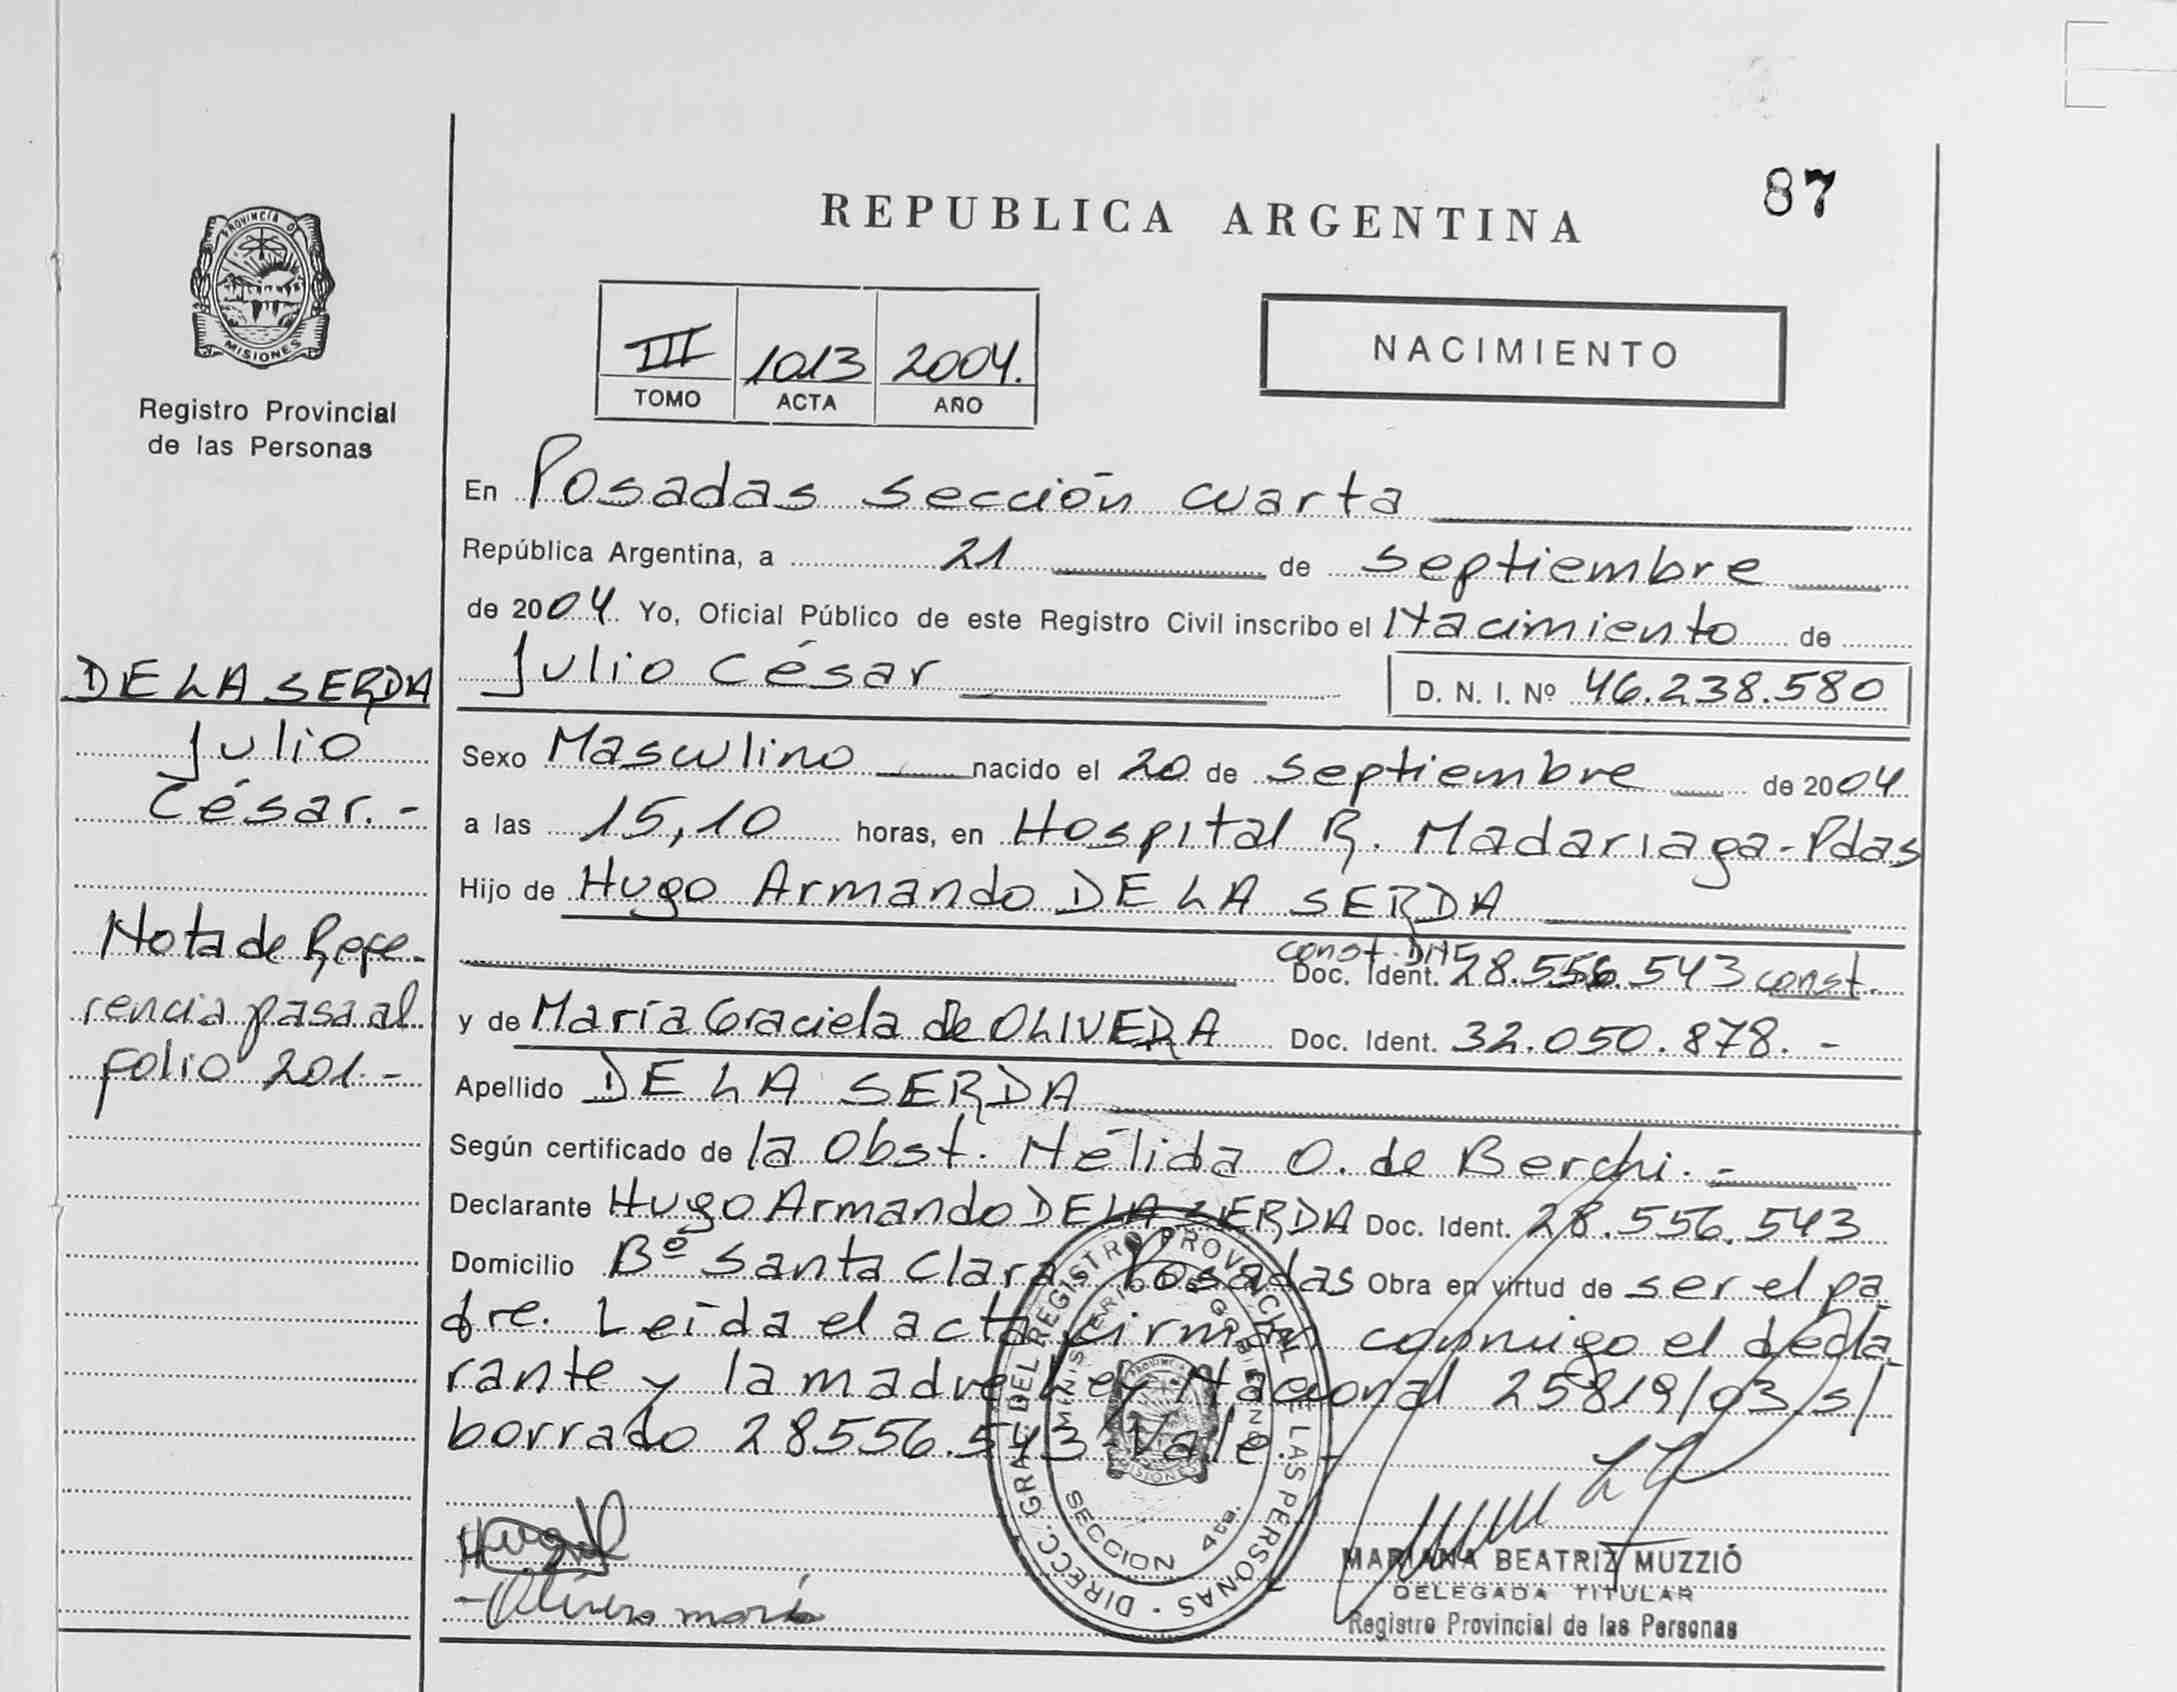 87
REPUBLICA ARGENTINA
PROVINCIA DE MISIONES
Registro Provincial
de las Personas
III 1013 2004.
TOMO ACTA AÑO
NACIMIENTO
En Posadas sección cuarta
República Argentina, a 21 de septiembre
de 2004. Yo, Oficial Público de este Registro Civil inscribo el Nacimiento de
Julio César D. N. I. Nº 46.238.580
Sexo Masculino nacido el 20 de septiembre de 2004
a las 15,10 horas, en Hospital R. Madariaga-Pdas
Hijo de Hugo Armando DE LA SERDA
const. DNI
Doc. Ident. 28.556.543 const.
y de María Graciela de OLIVERA Doc. Ident. 32.050.878. -
Apellido DE LA SERDA
Según certificado de la Obst. Nélida O. de Berchi. -
Declarante Hugo Armando DE LA SERDA Doc. Ident. 28.556.543
Domicilio Bº Santa Clara Posadas Obra en virtud de ser el pa
dre. Leída el acta firman conmigo el decla
rante y la madre Ley Nacional 25819/03 s/
borrado 28556.543 Vale. -
DE LA SERDA
Julio
César. -
Nota de Refe-
rencia pasa al
folio 201. -
Olivera maría
DIRECC. GRAL. DEL REGISTRO PROVINCIAL DE LAS PERSONAS
MINISTERIO DE GOBIERNO
SECCION 4ta.
PROVINCIA
MISIONES
MARIANA BEATRIZ MUZZIÓ
DELEGADA TITULAR
Registro Provincial de las Personas